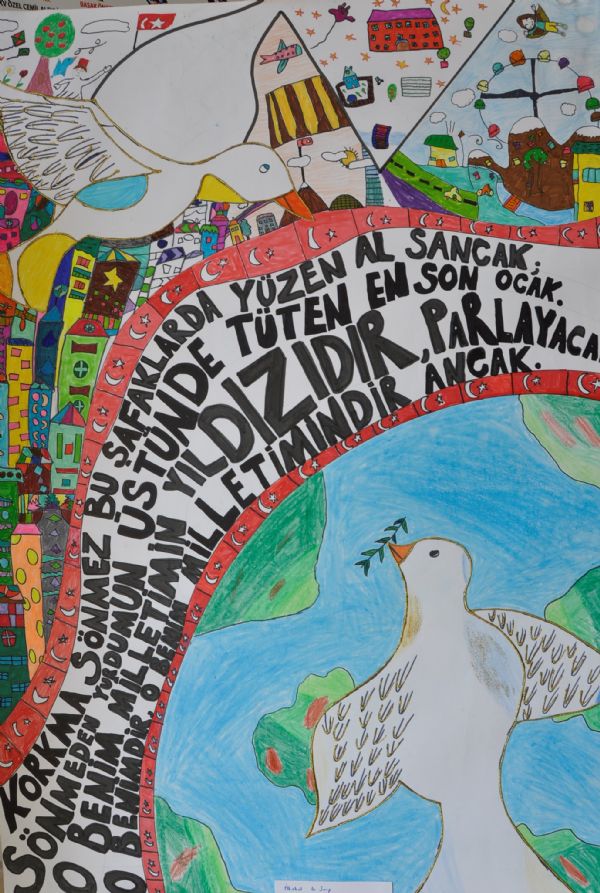 ÖZEL CEMİL
KORKMA SÖNMEZ BU ŞAFAKLARDA YÜZEN AL SANCAK;
SÖNMEDEN YURDUMUN ÜSTÜNDE TÜTEN EN SON OCAK.
O BENİM MİLLETİMİN YILDIZIDIR, PARLAYACA
O BENİMDİR, O BENİM MİLLETİMİNDİR ANCAK.